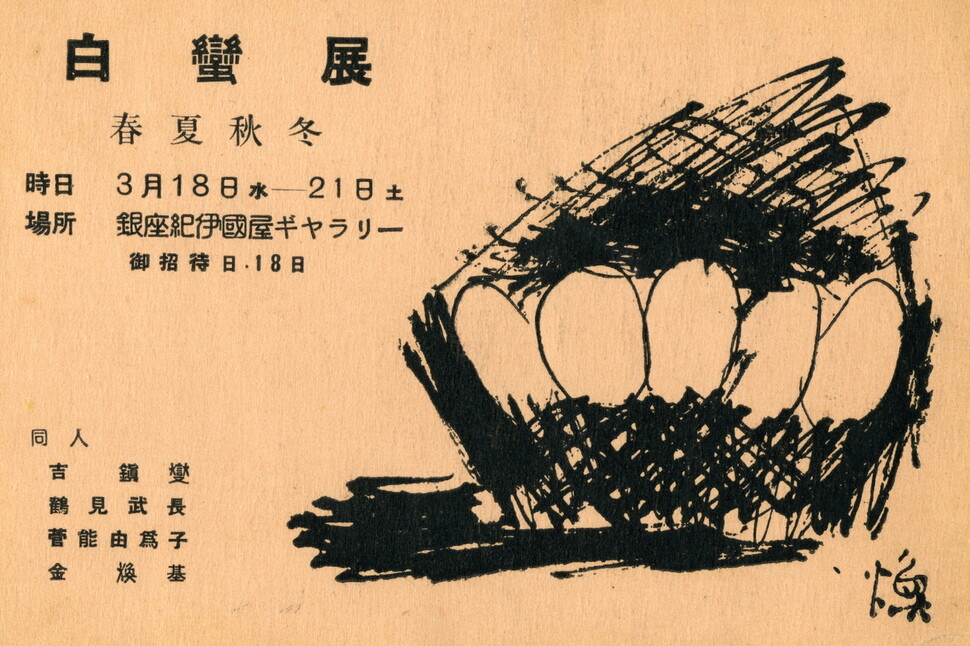 白蠻展
春夏秋冬
時日 3月18日水―21日土
場所 銀座紀伊國屋ギヤラリー
御招待日・18日
同人
吉鎭燮
鶴見武長
菅能由爲子
金煥基
煥